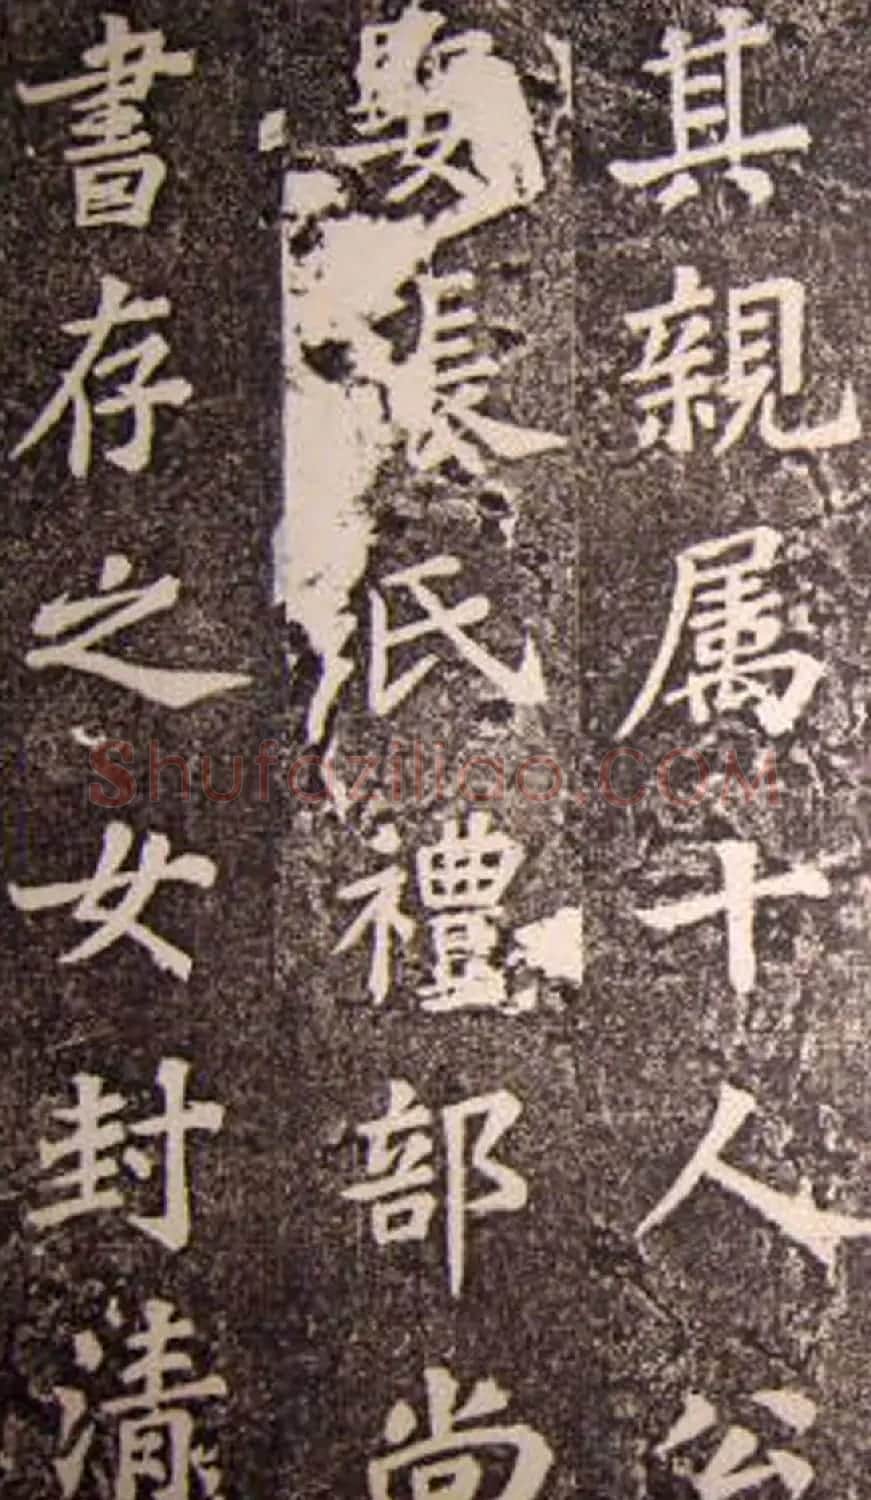 其親属十人公
娶張氏禮部尚
書存之女封清
Shufaziliao.COM